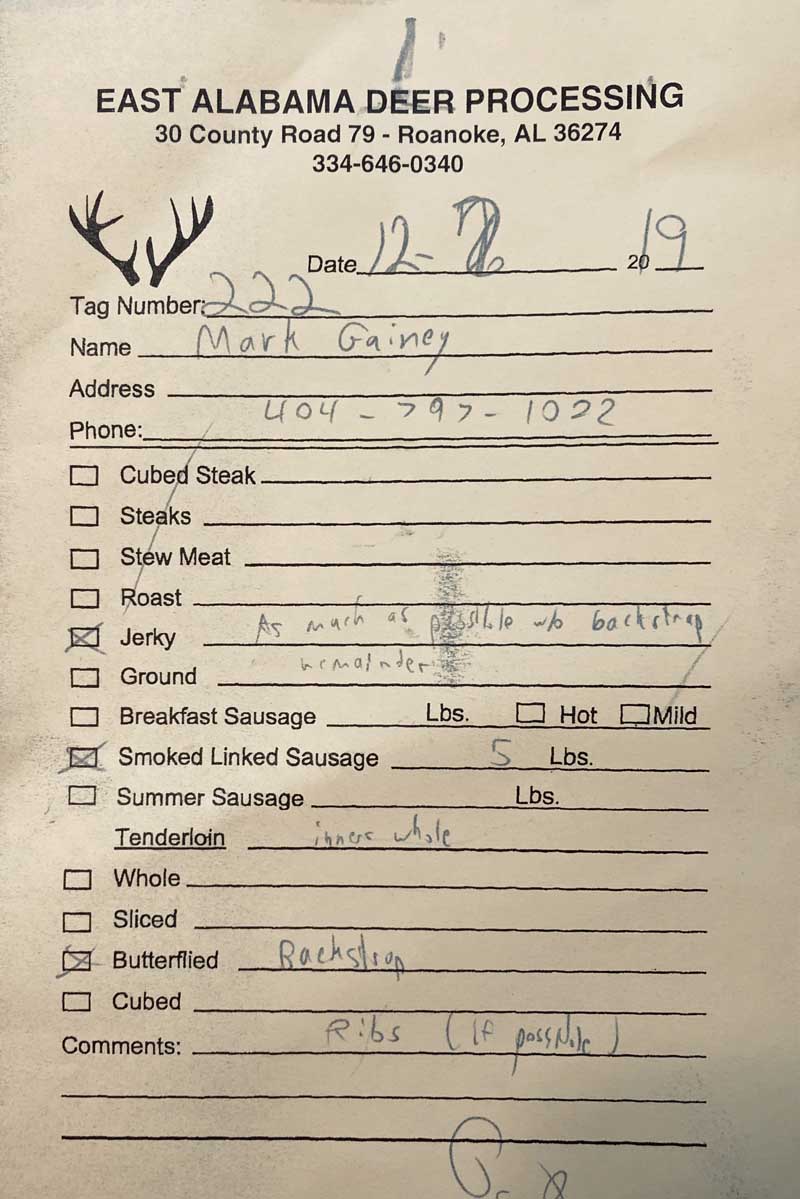 EAST ALABAMA DEER PROCESSING
30 County Road 79 - Roanoke, AL 36274
334-646-0340
Date 12- 2019
Tag Number: 222
Name Mark Gainey
Address
Phone: 404-797-1022
Cubed Steak
Steaks
Stew Meat
Roast
Jerky As much as possible w/o backstrap
Ground remainder
Breakfast Sausage Lbs. Hot Mild
Smoked Linked Sausage 5 Lbs.
Summer Sausage Lbs.
Tenderloin inners whole
Whole
Sliced
Butterflied Backstrap
Cubed
Comments: Ribs (If possible)